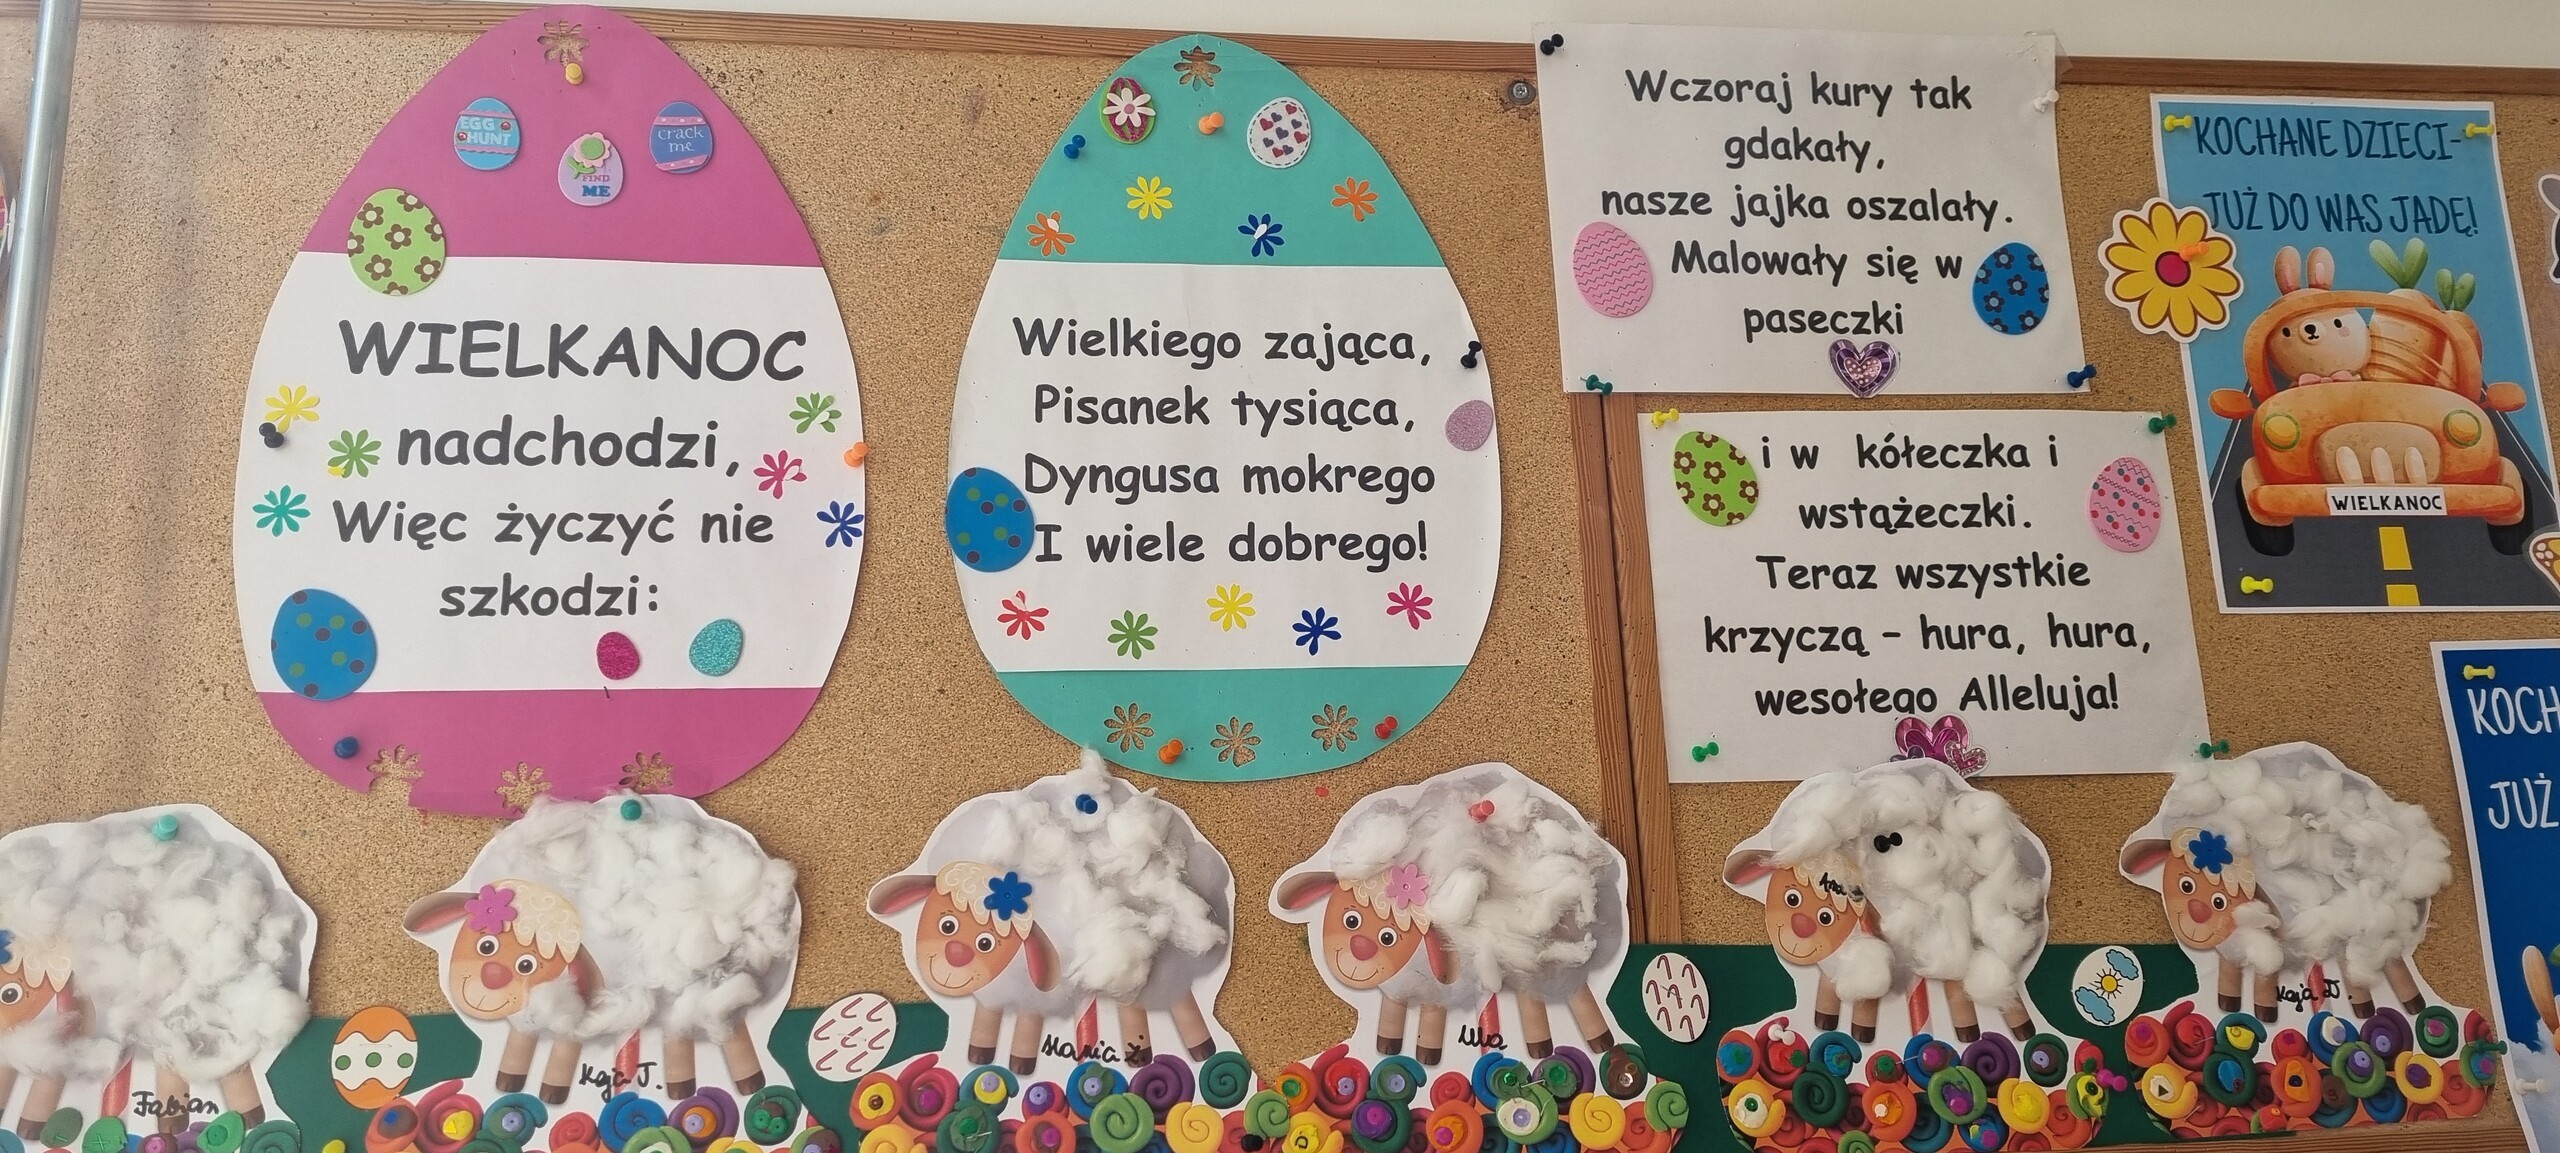 EGG
HUNT
FIND
ME
crack
me
WIELKANOC
nadchodzi,
Więc życzyć nie
szkodzi:
Wielkiego zająca,
Pisanek tysiąca,
Dyngusa mokrego
I wiele dobrego!
Wczoraj kury tak
gdakały,
nasze jajka oszalały.
Malowały się w
paseczki
i w kółeczka i
wstążeczki.
Teraz wszystkie
krzyczą - hura, hura,
wesołego Alleluja!
KOCHANE DZIECI-
JUŻ DO WAS JADĘ!
WIELKANOC
KOCH
JUŻ
Fabian
Kaja J.
Hania Ż.